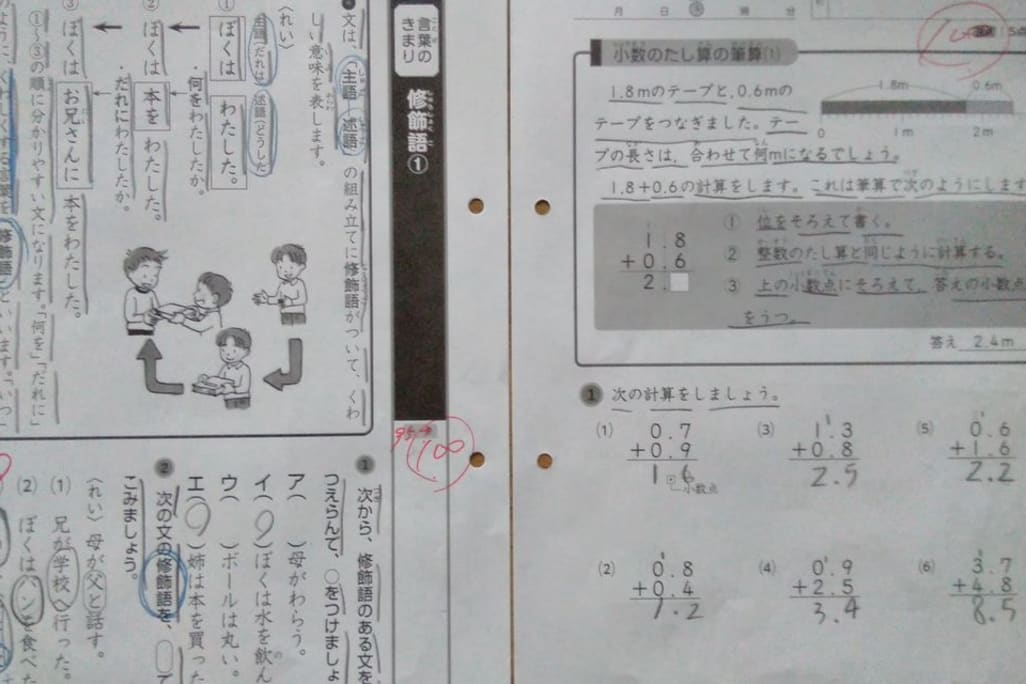 言葉の
きまり
修飾語①
文は、「主語」「述語」の組み立てに修飾語がついて、くわ
しい意味を表します。
〈れい〉
主語(だれは)
述語(どうした)
①
ぼくは
わたした。
・何をわたしたか。
②
ぼくは
本を
わたした。
・だれにわたしたか。
③
ぼくは
お兄さんに
本をわたした。
①~③の順に分かりやすい文になります。「何を」「だれに」
のように、くわしくする言葉を
修飾語
といいます。「いつ」
100
1
次から、修飾語のある文を
つえらんで、○をつけましょ
ア( )母がわらう。
イ(○)ぼくは水を飲ん
ウ( )ボールは丸い。
エ(○)姉は本を買った
2
次の文の修飾語を、
こみましょう。
〈れい〉母が父と話す。
(1) 兄が学校へ行った。
(2) ぼくはパンを食べた
月 日 時 分
小数のたし算の筆算(1)
1.8mのテープと、0.6mの
テープをつなぎました。テー
プの長さは、合わせて何mになるでしょう。
1.8m
0.6m
0 1m 2m
1.8+0.6の計算をします。これは筆算で次のようにします
1.8
+0.6
2.
① 位をそろえて書く。
② 整数のたし算と同じように計算する。
③ 上の小数点にそろえて、答えの小数点
をうつ。
答え 2.4m
1 次の計算をしましょう。
(1) 0.7
+0.9
1.6
小数点
(3) 1.3
+0.8
2.5
(5) 0.6
+1.6
2.2
(2) 0.8
+0.4
1.2
(4) 0.9
+2.5
3.4
(6) 3.7
+4.8
8.5